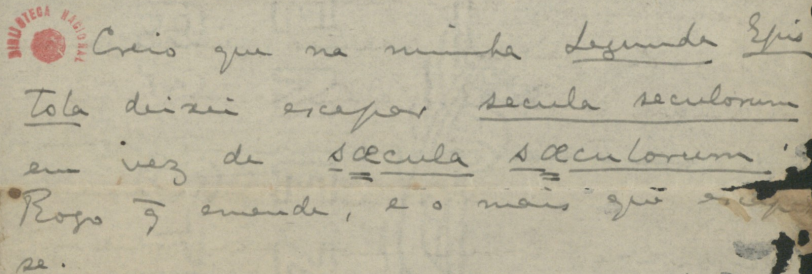 BIBLIOTECA NACIONAL
Creio que na minha Segunda Epis
tola deixei escapar secula seculorum
em vez de sæcula sæculorum.
Rogo q̃ emende, e o mais que escapas
se.